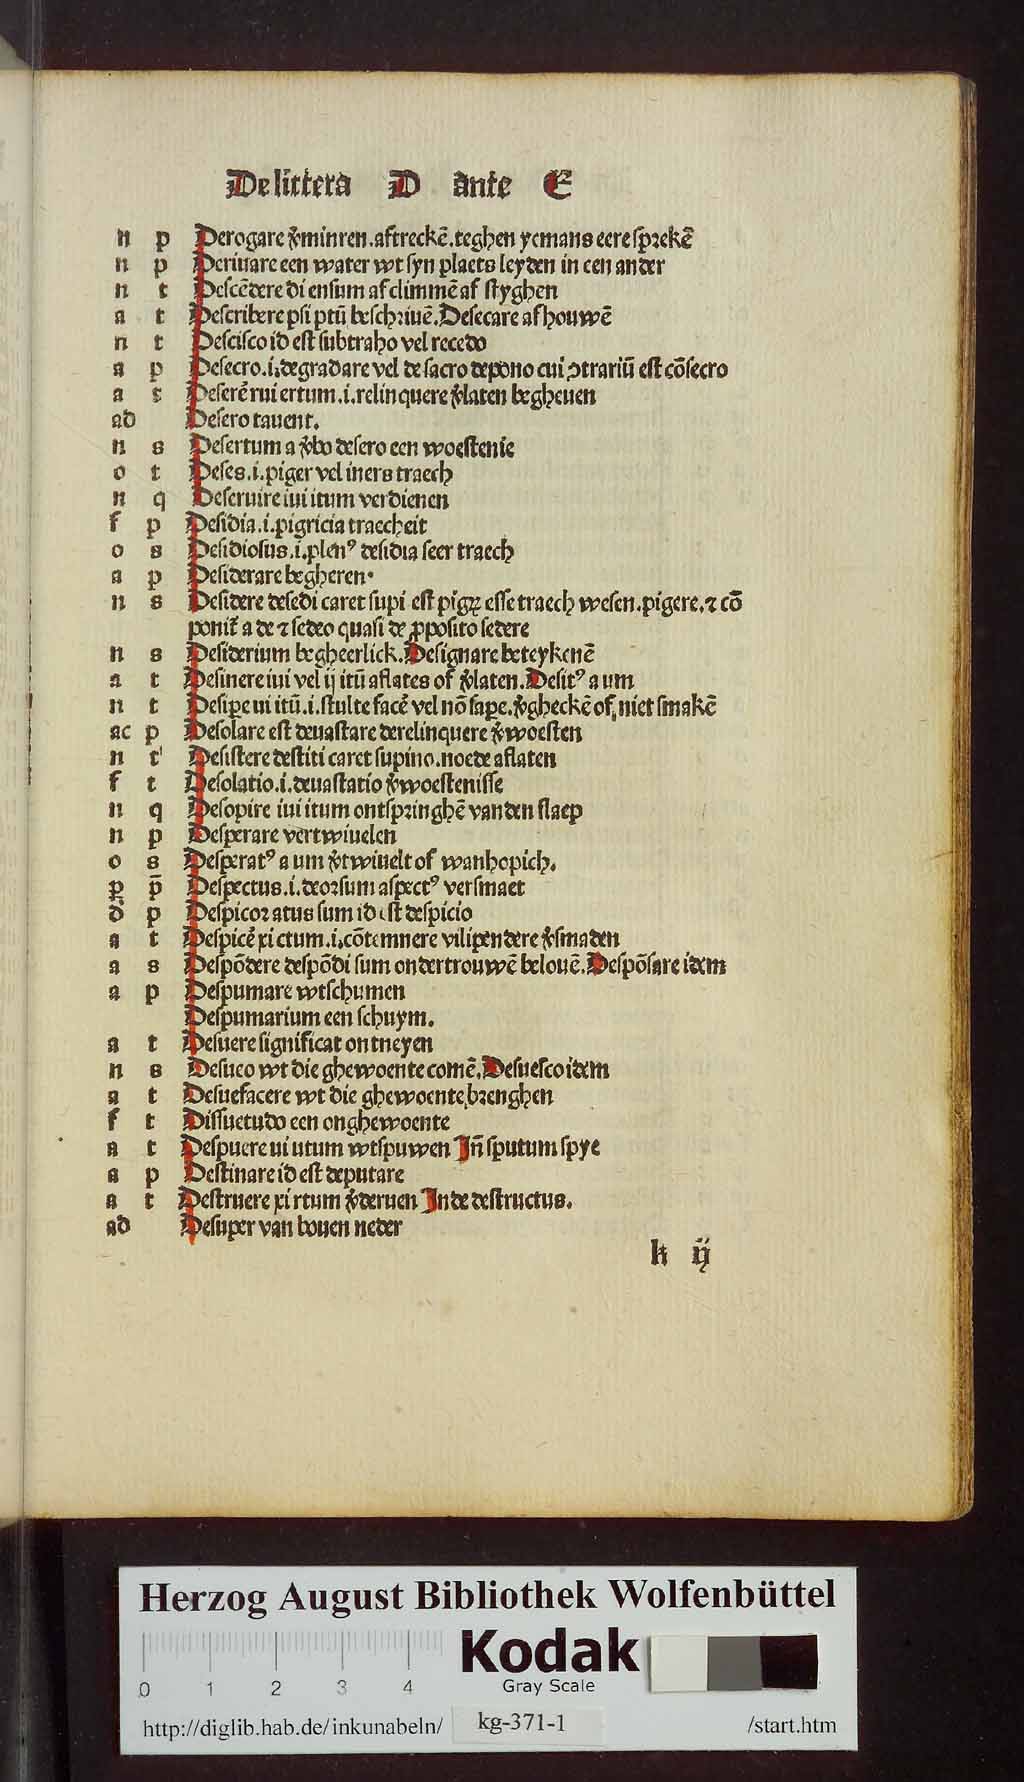 De littera D ante E
n p Derogare v̾minren.aftreckē.teghen yemans eere sprekē
n p Deriuare een water wt syn plaets leyden in een ander
n t Descēdere di ensum af climmē af styghen
a t Describere psi ptū beschriuē.Desecare afhouwē
n t Descisco id est subtraho vel recedo
a p Desecro.i.degradare vel de sacro depono cui ꝯtrariū est cōsecro
a t Deserē rui ertum.i.relinquere v̾laten begheuen
ad Desero tauent.
n s Desertum a v̾bo desero een woestenie
o t Deses.i.piger vel iners traech
n q Deseruire iui itum verdienen
f p Desidia.i.pigricia traecheit
o s Desidiosus.i.plenꝰ desidia seer traech
a p Desiderare begheren.
n s Desidere desedi caret supi est pigꝝ esse traech wesen.pigere.⁊ cō
ponit̃ a de ⁊ sedeo quasi de ꝓposito sedere
n s Desiderium begheerlick.Designare beteykenē
a t Desinere iui vel ij itū aflates of v̾laten.Desitꝰ a um
n t Desipe ui itū.i.stulte facē vel nō sape.v̾gheckē of niet smakē
ac p Desolare est deuastare derelinquere v̾woesten
n t Desistere destiti caret supino.noede aflaten
f t Desolatio.i.deuastatio v̾woestenisse
n q Desopire iui itum ontspringhē van den slaep
n p Desperare vertwiuelen
o s Desperatꝰ a um v̾twiuelt of wanhopich.
ꝑ p̄ Despectus.i.deorsum aspectꝰ versmaet
d̄ p Despicor atus sum id est despicio
a t Despicē xi ctum.i.cōtemnere vilipendere v̾smaden
a s Despōdere despōdi sum ondertrouwē belouē.Despōsare idem
a p Despumare wtschumen
Despumarium een schuym.
a t Desuere significat ontneyen
n s Desueo wt die ghewoente comē.Desuesco idem
a t Desuefacere wt die ghewoente brenghen
f t Dissuetudo een onghewoente
a t Despuere ui utum wtspuwen Jn̄ sputum spye
a p Destinare id est deputare
a t Destruere xi rtum v̾deruen Jnde destructus.
ad Desuper van bouen neder
k ij
Herzog August Bibliothek Wolfenbüttel
0 1 2 3 4
Kodak
Gray Scale
http://diglib.hab.de/inkunabeln/ kg-371-1 /start.htm